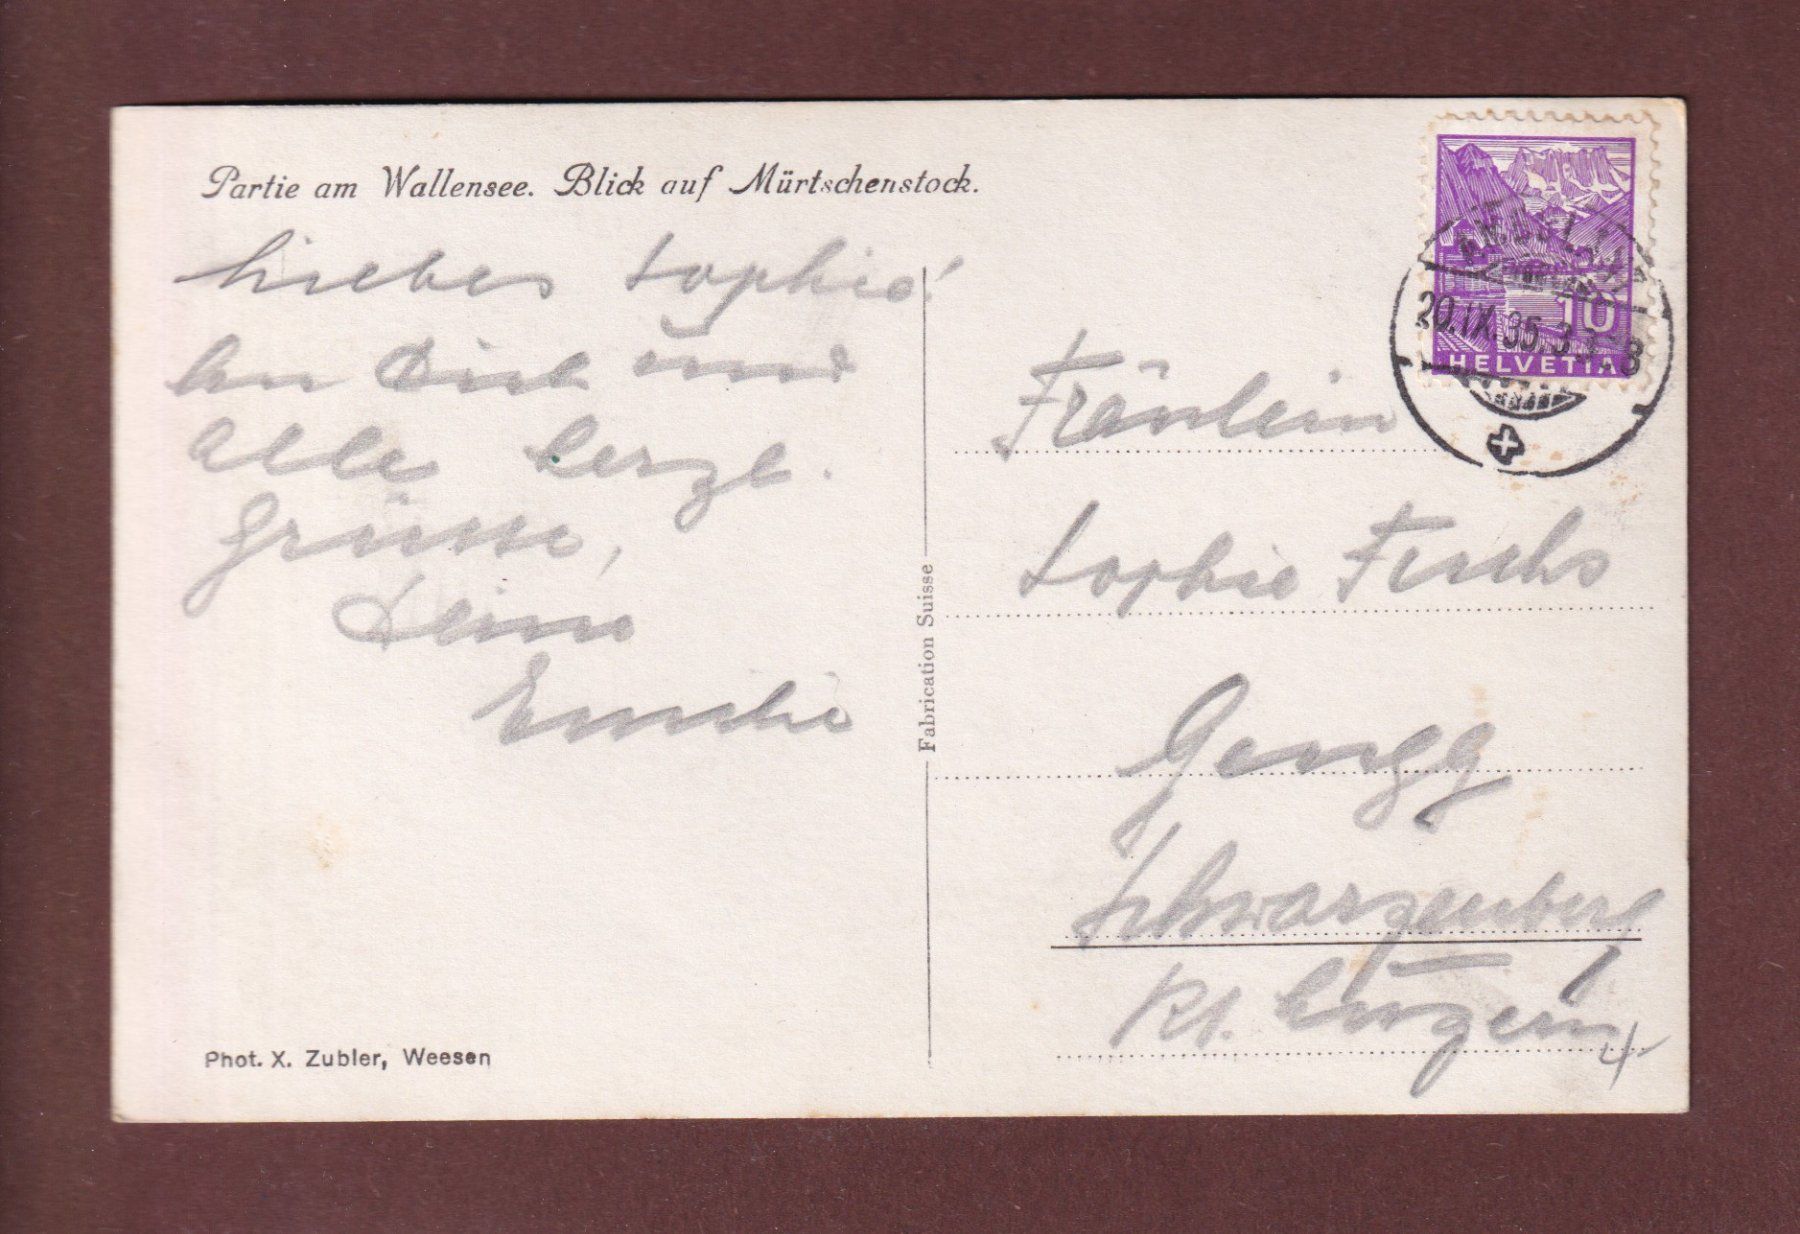 Partie am Wallensee. Blick auf Mürtschenstock.
Liebes Sophie!
An Dich und
alle herzl.
Grüsse,
Deine
Emilie
Fabrication Suisse
Phot. X. Zubler, Weesen
10
HELVETIA
20.IX.35.
Fräulein
Sophie Fuchs
Schwarzenberg
Kt. Luzern